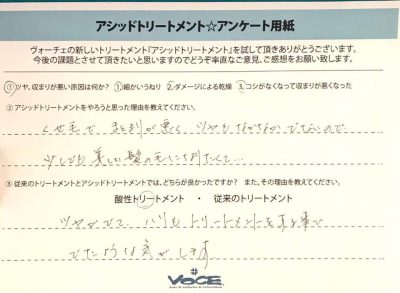 アシッドトリートメント☆アンケート用紙
ヴォーチェの新しいトリートメント「アシッドトリートメント」を試して頂きありがとうございます。
今後の課題とさせて頂きたいと思いますのでどうぞ率直なご意見、ご感想をお願い致します。
①ツヤ、収まりが悪い原因は何か? ①細かいうねり ②ダメージによる乾燥 ③コシがなくなって収まりが悪くなった
②アシッドトリートメントをやろうと思った理由を教えてください。
くせ毛で まとまりが悪く、ツヤもなかなかでないので、
少しでも 美しい髪の毛になりたくて…
③従来のトリートメントとアシッドトリートメントでは、どちらが良かったですか? また、その理由を教えてください。
酸性トリートメント ・ 従来のトリートメント
ツヤがでて、ハリもトリートメントをする事で
でたような気がします
VOCE